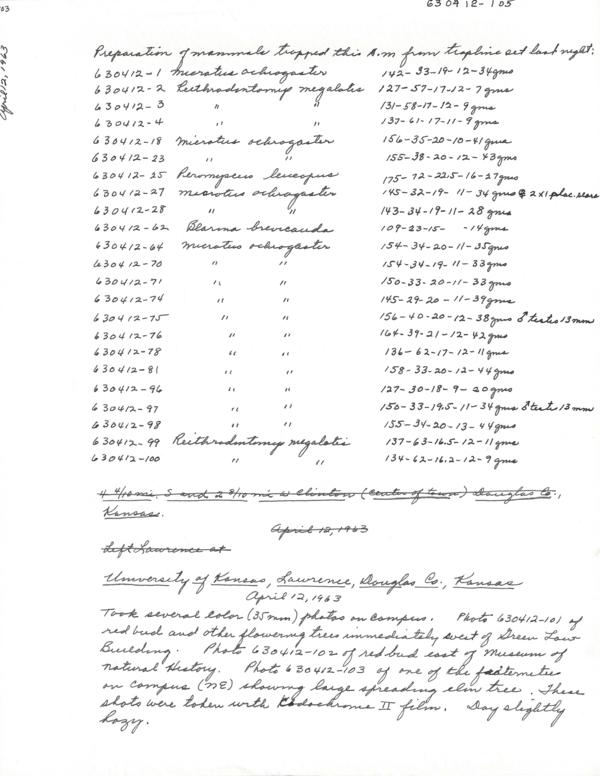 630412-105
April 12, 1963
Preparation of mammals trapped this A.m from trapline set last night:
630412-1 Microtus ochrogaster 142-33-19-12-34gms
630412-2 Reithrodontomys megalotis 127-57-17-12-7gms
630412-3 " " 131-58-17-12-9gms
630412-4 " " 137-61-17-11-9gms
630412-18 Microtus ochrogaster 156-35-20-10-41gms
630412-23 " " 155-38-20-12-43gms
630412-25 Peromyscus leucopus 175-72-22.5-16-27gms
630412-27 Microtus ochrogaster 145-32-19-11-34gms ♀ 2x1 plac. scars
630412-28 " " 143-34-19-11-28gms
630412-62 Blarina brevicauda 109-23-15- -14gms
630412-64 Microtus ochrogaster 154-34-20-11-35gms
630412-70 " " 154-34-19-11-33gms
630412-71 " " 150-33-20-11-33gms
630412-74 " " 145-29-20-11-39gms
630412-75 " " 156-40-20-12-38gms ♂ testes 13mm
630412-76 " " 164-39-21-12-42gms
630412-78 " " 136-62-17-12-11gms
630412-81 " " 158-33-20-12-44gms
630412-96 " " 127-30-18-9-20gms
630412-97 " " 150-33-19.5-11-34gms ♂ test. 13mm
630412-98 " " 155-34-20-13-44gms
630412-99 Reithrodontomys megalotis 137-63-16.5-12-11gms
630412-100 " " 134-62-16.2-12-9gms
4 4/10 mi. S and 2 8/10 mi W Clinton (center of town) Douglas Co.,
Kansas.
April 12, 1963
Left Lawrence at
University of Kansas, Lawrence, Douglas Co., Kansas
April 12, 1963
Took several color (35mm) photos on campus. Photo 630412-101 of
red bud and other flowering trees immediately west of Green Law
Building. Photo 630412-102 of red bud east of Museum of
Natural History. Photo 630412-103 of one of the fraternities
on campus (NE) showing large spreading elm tree. These
shots were taken with Kodachrome II film. Day slightly
hazy.